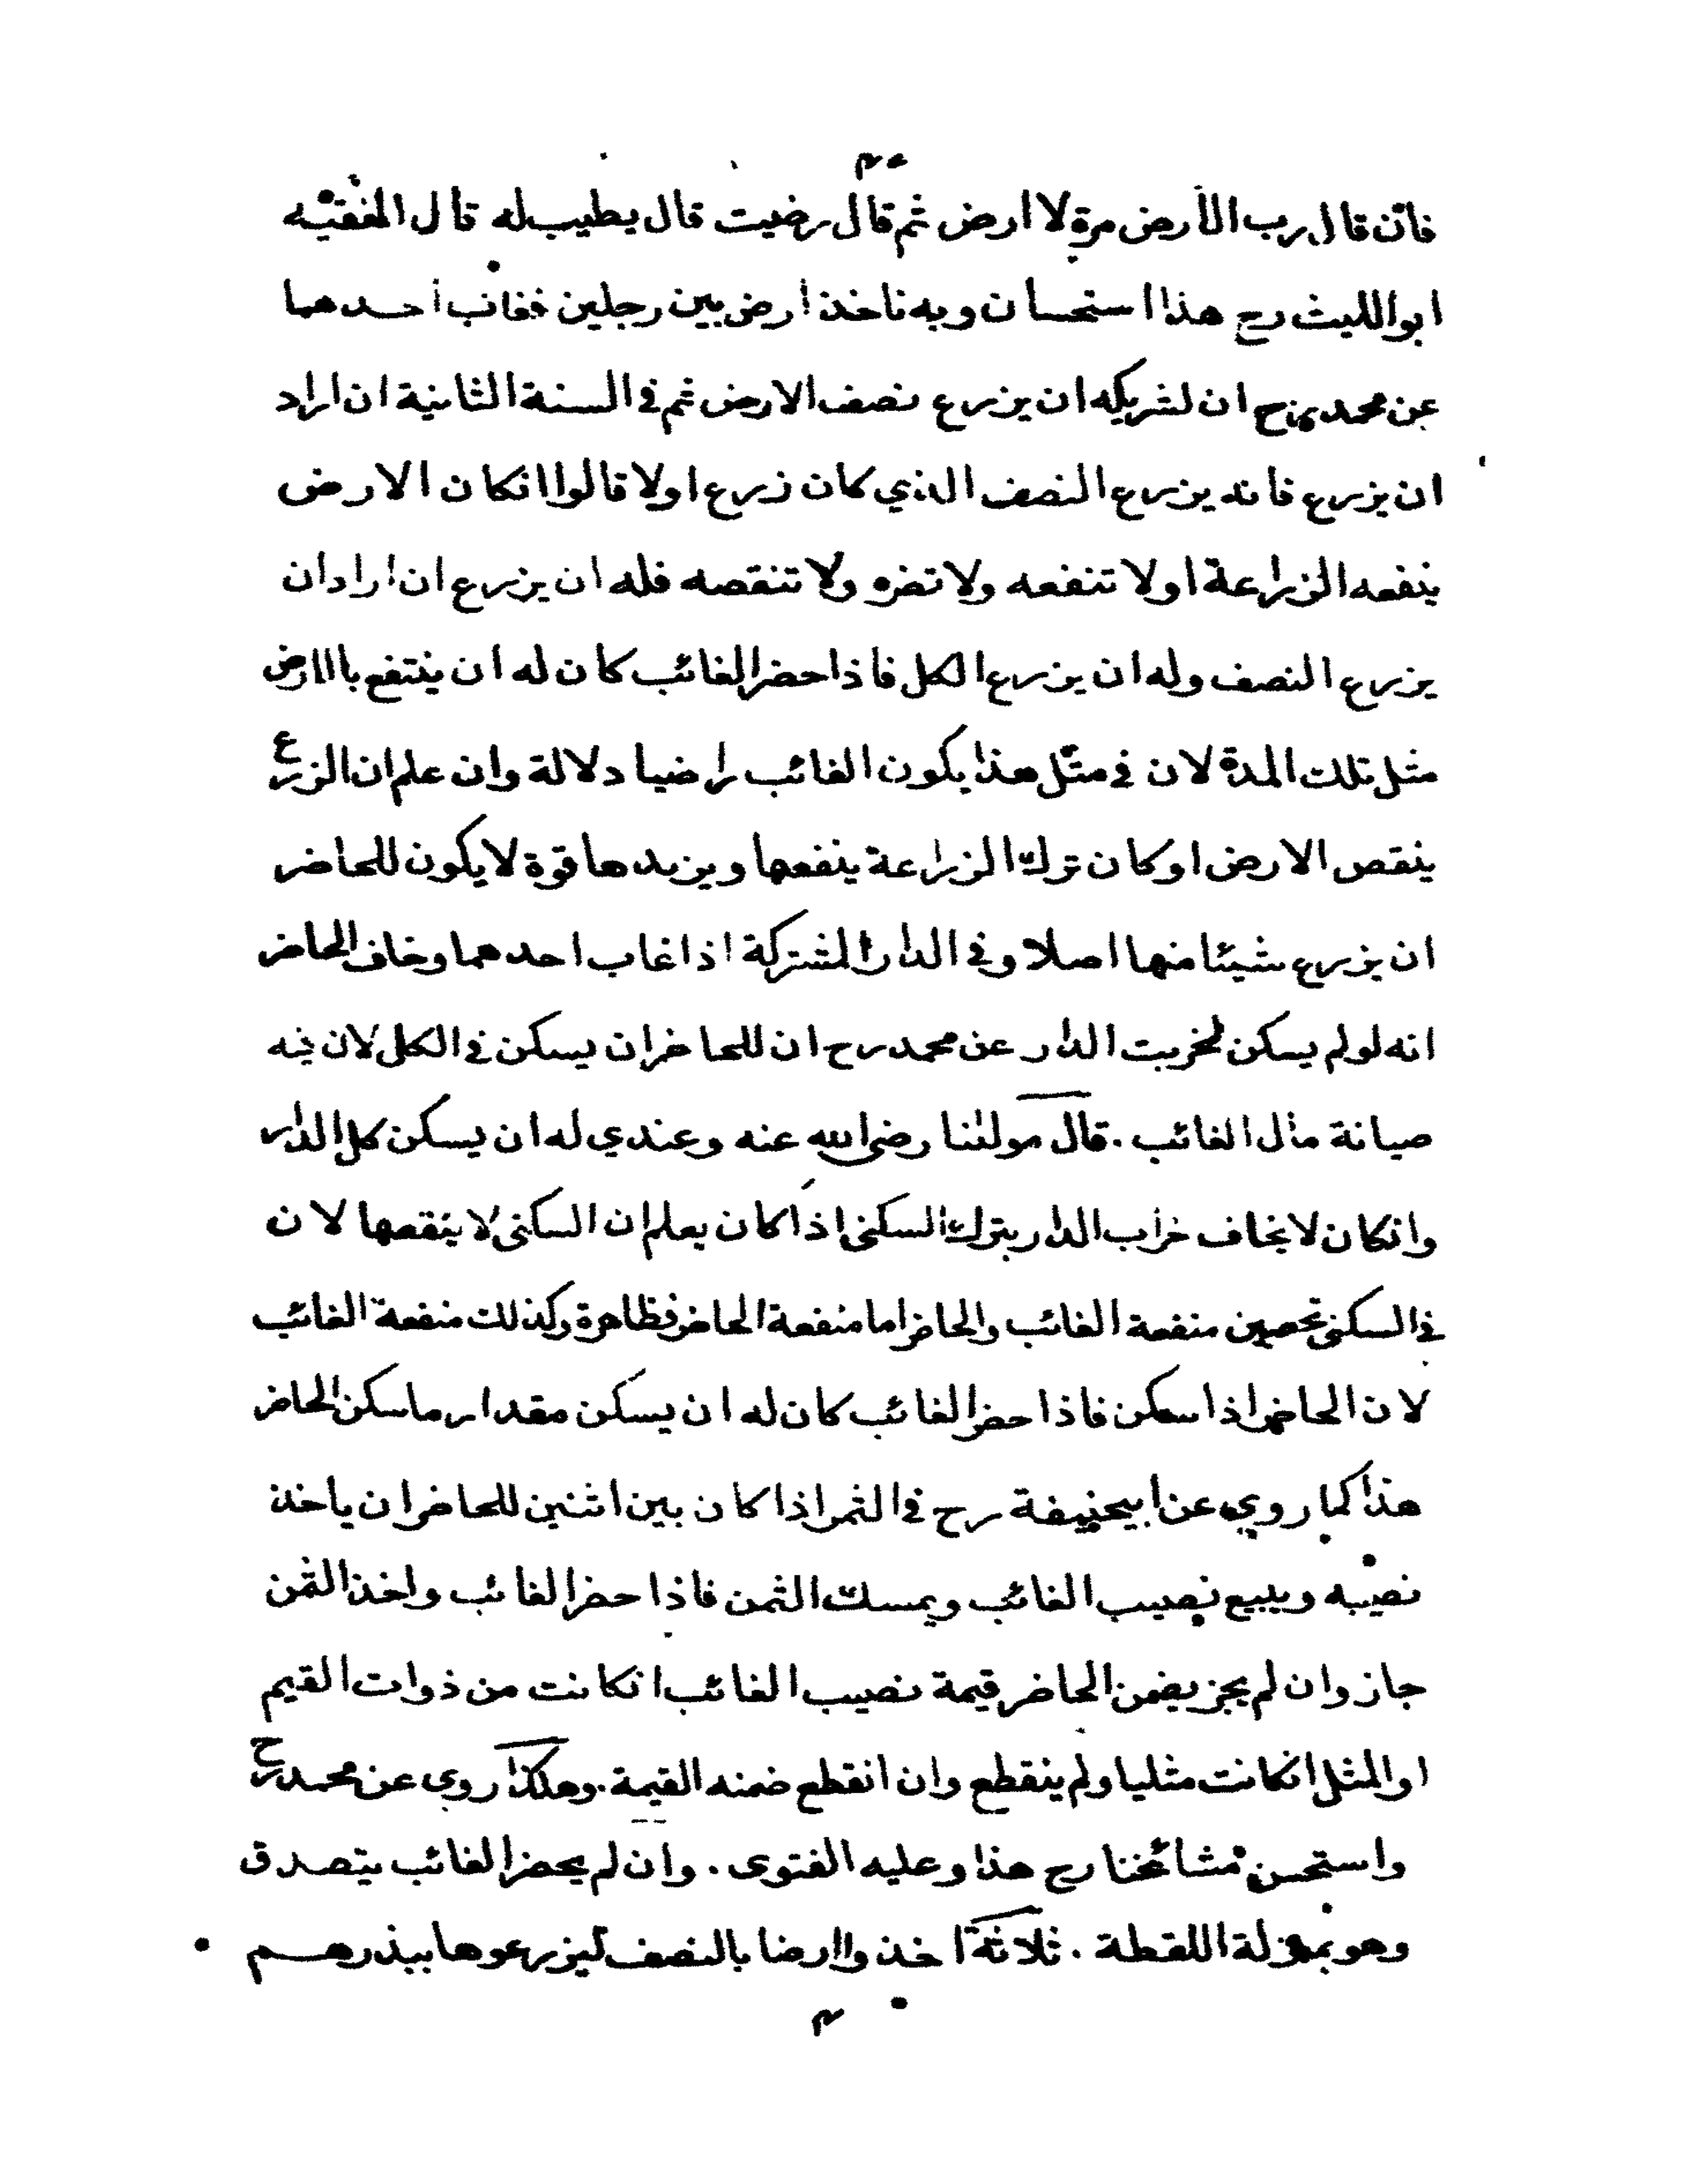 فان قال رب الأرض مرة لا ارض ثم قال رضيت قال يطيب له قال الفقيه
ابو الليث رح هذا استحسان وبه ناخذ ارض بين رجلين فغاب احدهما
عن محمد رح ان لشريكه ان يزرع نصف الارض ثم في السنة الثانية ان اراد
ان يزرع فانه يزرع النصف الذي كان زرع اولا قالوا انكان الارض
ينفعه الزراعة اولا تنفعه ولا تضره ولا تنقصه فله ان يزرع ان اراد ان
يزرع النصف وله ان يزرع الكل فاذا حضر الغائب كان له ان ينتفع بالارض
مثل تلك المدة لان في مثل هذا يكون الغائب راضيا دلالة وان علم ان الزرع
ينقص الارض او كان ترك الزراعة ينفعها ويزيدها قوة لا يكون للحاضر
ان يزرع شيئا منها اصلا وفي الدار المشتركة اذا غاب احدهما وخاف الحاضر
انه لو لم يسكن لخربت الدار عن محمد رح ان للحاضر ان يسكن في الكل لان فيه
صيانة مال الغائب . قال مولنا رضي الله عنه وعندي له ان يسكن كل الدار
وانكان لا يخاف خراب الدار بترك السكنى اذا كان يعلم ان السكنى لا ينقصها لان
في السكنى تحصين منفعة الغائب والحاضر اما منفعة الحاضر فظاهرة وكذلك منفعة الغائب
لان الحاضر اذا سكن فاذا حضر الغائب كان له ان يسكن مقدار ما سكن الحاضر
هذا كما روي عن ابيحنيفة رح في الثمر اذا كان بين اثنين للحاضر ان ياخذ
نصيبه ويبيع نصيب الغائب ويمسك الثمن فاذا حضر الغائب واخذ الثمن
جاز وان لم يجز يضمن الحاضر قيمة نصيب الغائب انكانت من ذوات القيم
او المثل انكانت مثليا ولم ينقطع وان انقطع ضمنه القيمة . وهكذا روي عن محمد رح
واستحسن مشائخنا رح هذا وعليه الفتوى . وان لم يحضر الغائب يتصدق
وهو بمنزلة اللقطة . ثلاثة اخذوا ارضا بالنصف ليزرعوها ببذرهم